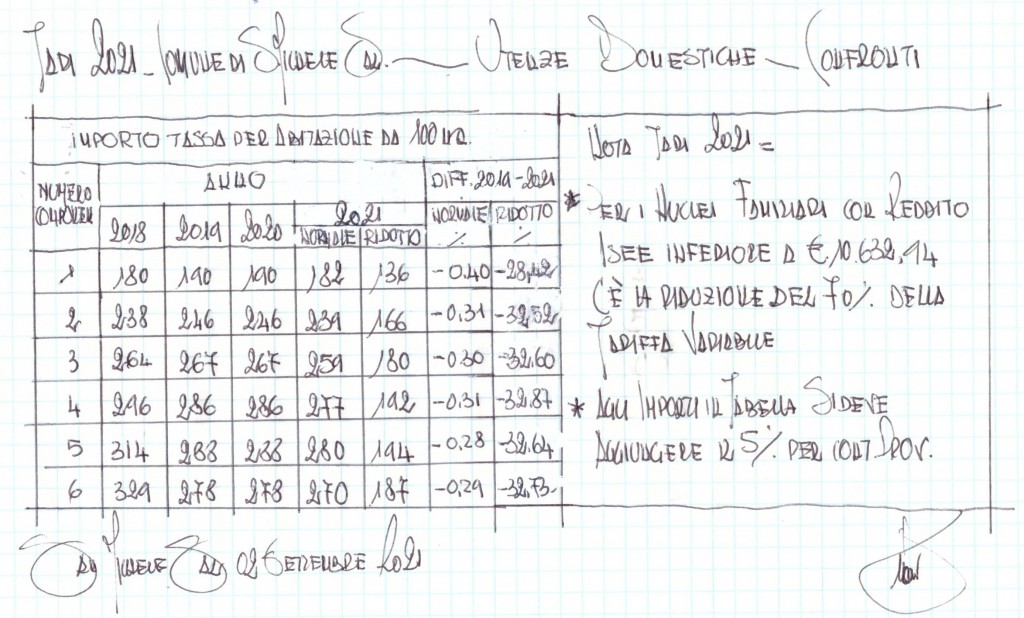 TARI 2021 - COMUNE DI S. MICHELE SAL. — UTENZE DOMESTICHE - CONFRONTI
IMPORTO TASSA PER ABITAZIONE DA 100 MQ.
NUMERO COMPONEN ANNO DIFF. 2019-2021
2018 2019 2020 2021 NORMALE RIDOTTO
NORMALE RIDOTTO % %
1 180 190 190 182 136 -0.40 -28,42
2 238 246 246 239 166 -0.31 -32.52
3 264 267 267 259 180 -0.30 -32.60
4 296 286 286 277 192 -0.31 -32.87
5 314 288 288 280 194 -0.28 -32.64
6 329 278 278 270 187 -0.29 -32.73
NOTA TARI 2021 =
* PER I NUCLEI FAMILIARI CON REDDITO
ISEE INFERIORE A € 10.632,94
C'È LA RIDUZIONE DEL 70% DELLA
TARIFFA VARIABILE
* AGLI IMPORTI IN TABELLA SI DEVE
AGGIUNGERE IL 5% PER CONT. PROV.
SAN MICHELE SAL 02 SETTEMBRE 2021